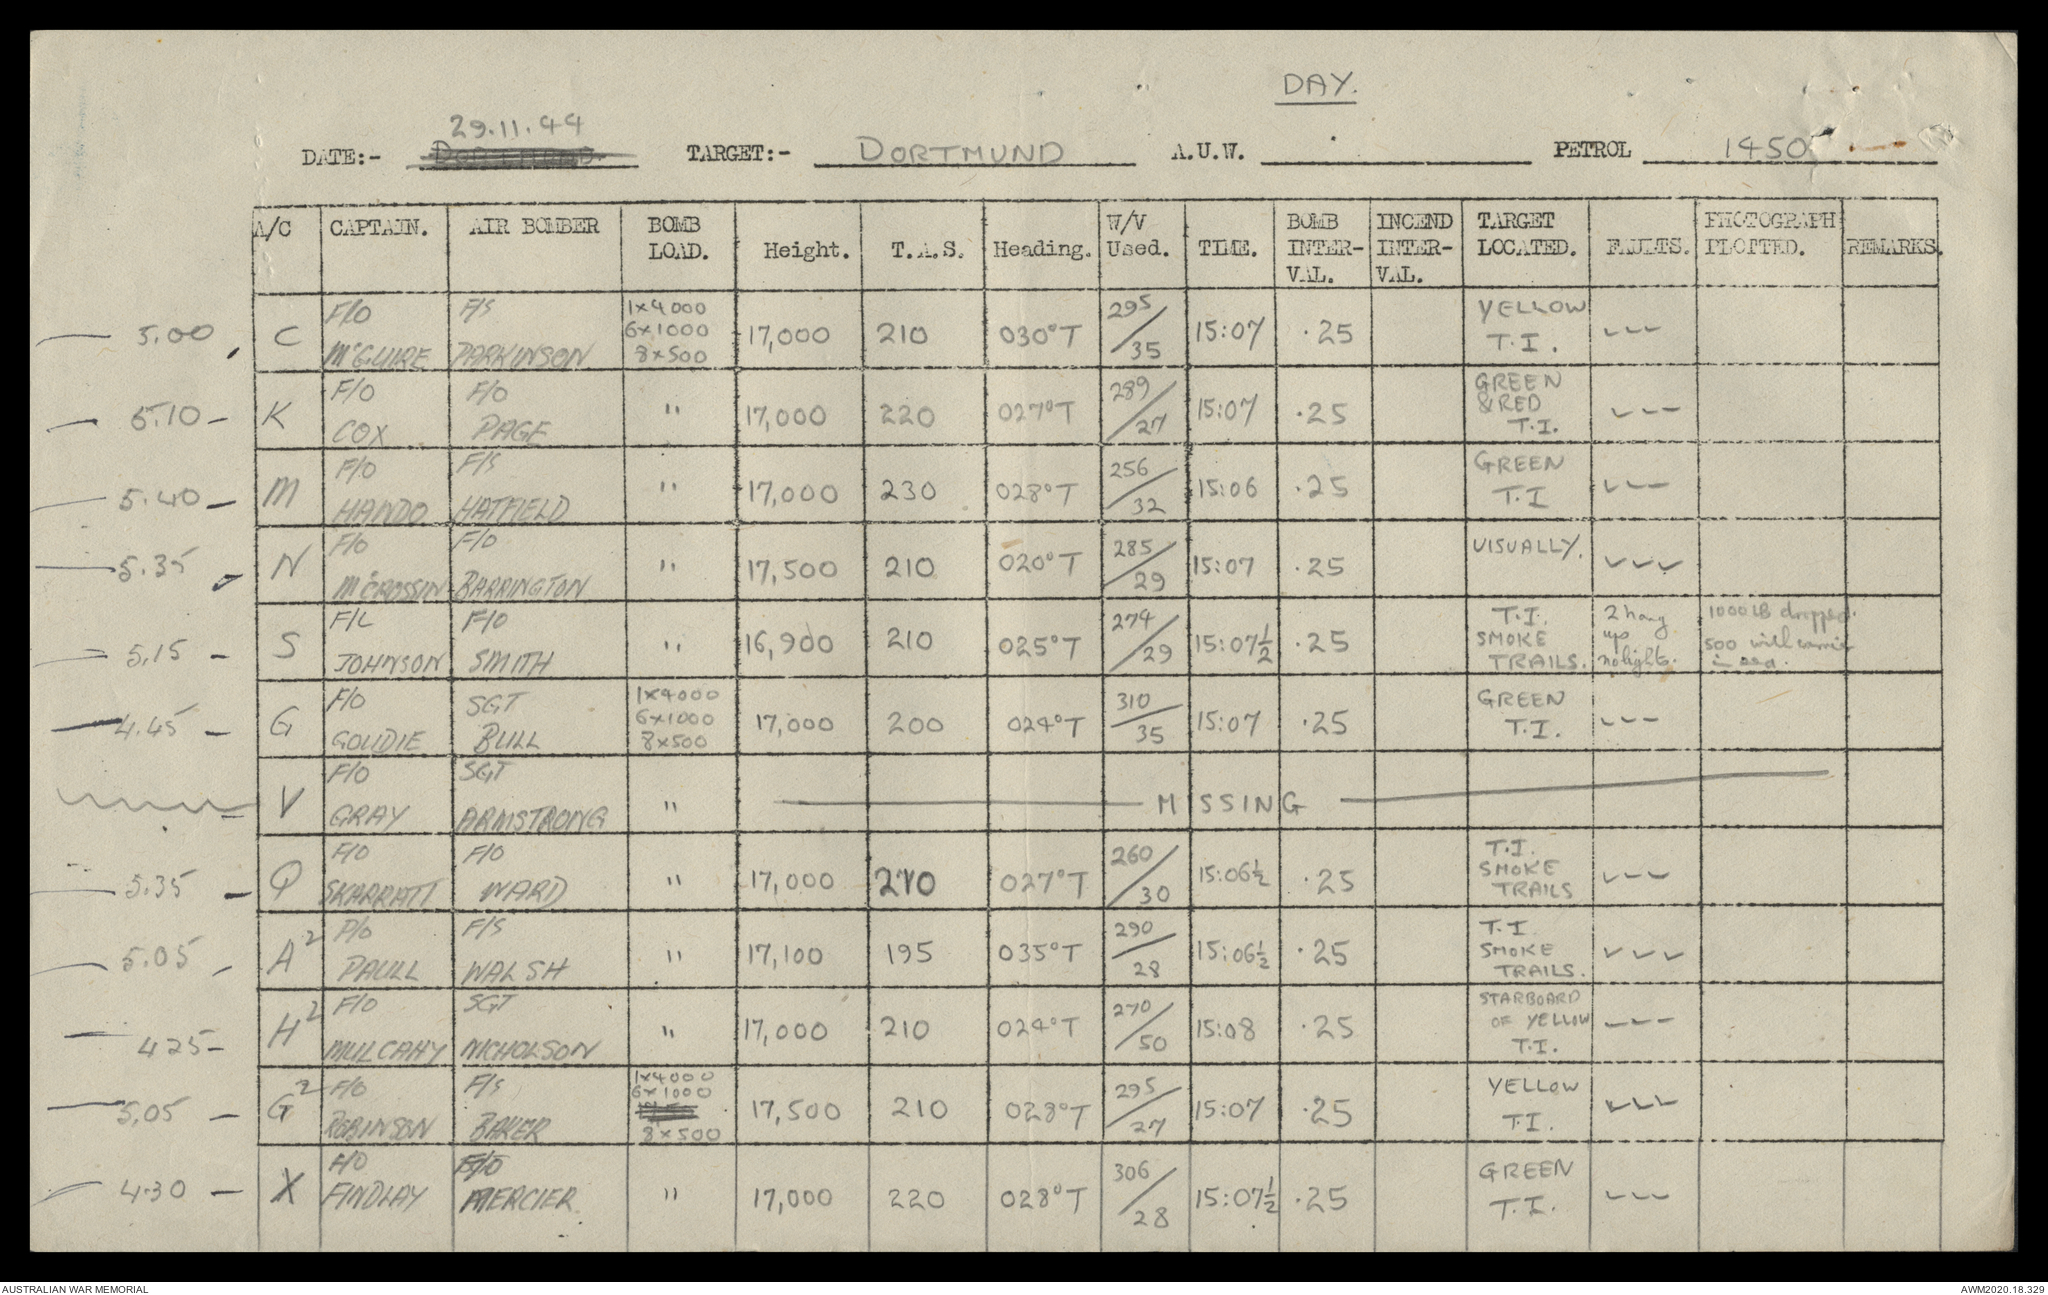 DAY.
29.11.44
DATE:- TARGET:- DORTMUND A.U.W. PETROL 1450
A/C CAPTAIN. AIR BOMBER BOMB LOAD. Height. T.A.S. Heading. W/V Used. TIME. BOMB INTER-VAL. INCEND INTER-VAL. TARGET LOCATED. FAULTS. PHOTOGRAPH PLOTTED. REMARKS.
5.00 C F/O McGUIRE F/S PARKINSON 1x4000 6x1000 8x500 17,000 210 030°T 295/35 15:07 .25 YELLOW T.I.
5.10 K F/O COX F/O PAGE " 17,000 220 027°T 289/27 15:07 .25 GREEN & RED T.I.
5.40 M F/O HANDO F/S HATFIELD " 17,000 230 028°T 256/32 15:06 .25 GREEN T.I
5.35 N F/O McCROSSIN F/O BARRINGTON " 17,500 210 020°T 285/29 15:07 .25 VISUALLY.
5.15 S F/L JOHNSON F/O SMITH " 16,900 210 025°T 274/29 15:07½ .25 T.I. SMOKE TRAILS. 2 hang up no lights. 1000 LB dropped. 500 with carrier in sea.
4.45 G F/O GOUDIE SGT BULL 1x4000 6x1000 8x500 17,000 200 024°T 310/35 15:07 .25 GREEN T.I.
V F/O GRAY SGT ARMSTRONG " MISSING
5.35 Q F/O SKARRATT F/O WARD " 17,000 210 027°T 260/30 15:06½ .25 T.I. SMOKE TRAILS
5.05 A² P/O PAULL F/S WALSH " 17,100 195 035°T 290/28 15:06½ .25 T.I SMOKE TRAILS.
4.25 H² F/O MULCAHY SGT NICHOLSON " 17,000 210 024°T 270/50 15:08 .25 STARBOARD OF YELLOW T.I.
5.05 G² F/O ROBINSON F/S BAKER 1x4000 6x1000 8x500 17,500 210 028°T 295/27 15:07 .25 YELLOW T.I.
4.30 X F/O FINDLAY F/O MERCIER " 17,000 220 028°T 306/28 15:07½ .25 GREEN T.I.
AUSTRALIAN WAR MEMORIAL AWM2020.18.329